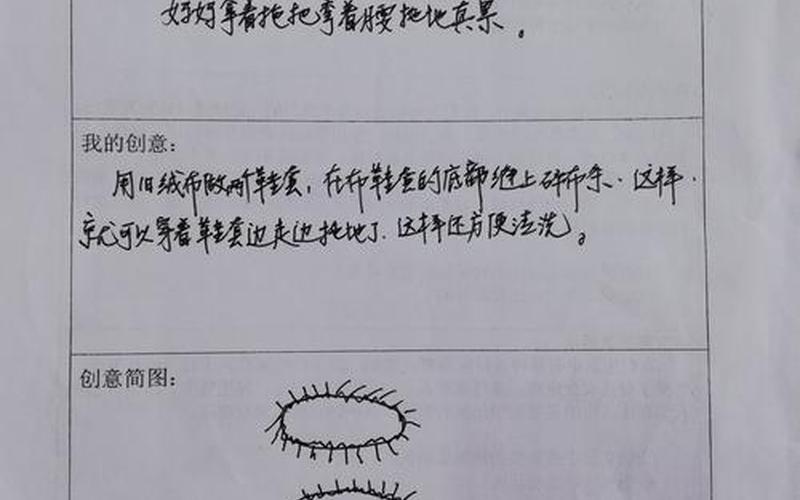 妈妈拿着拖把弯着腰拖地真累。
我的创意:
用旧绒布做两个鞋套,在布鞋套的底部缝上碎布条.这样.
就可以穿着鞋套边走边拖地了.这样还方便清洗。
创意简图: